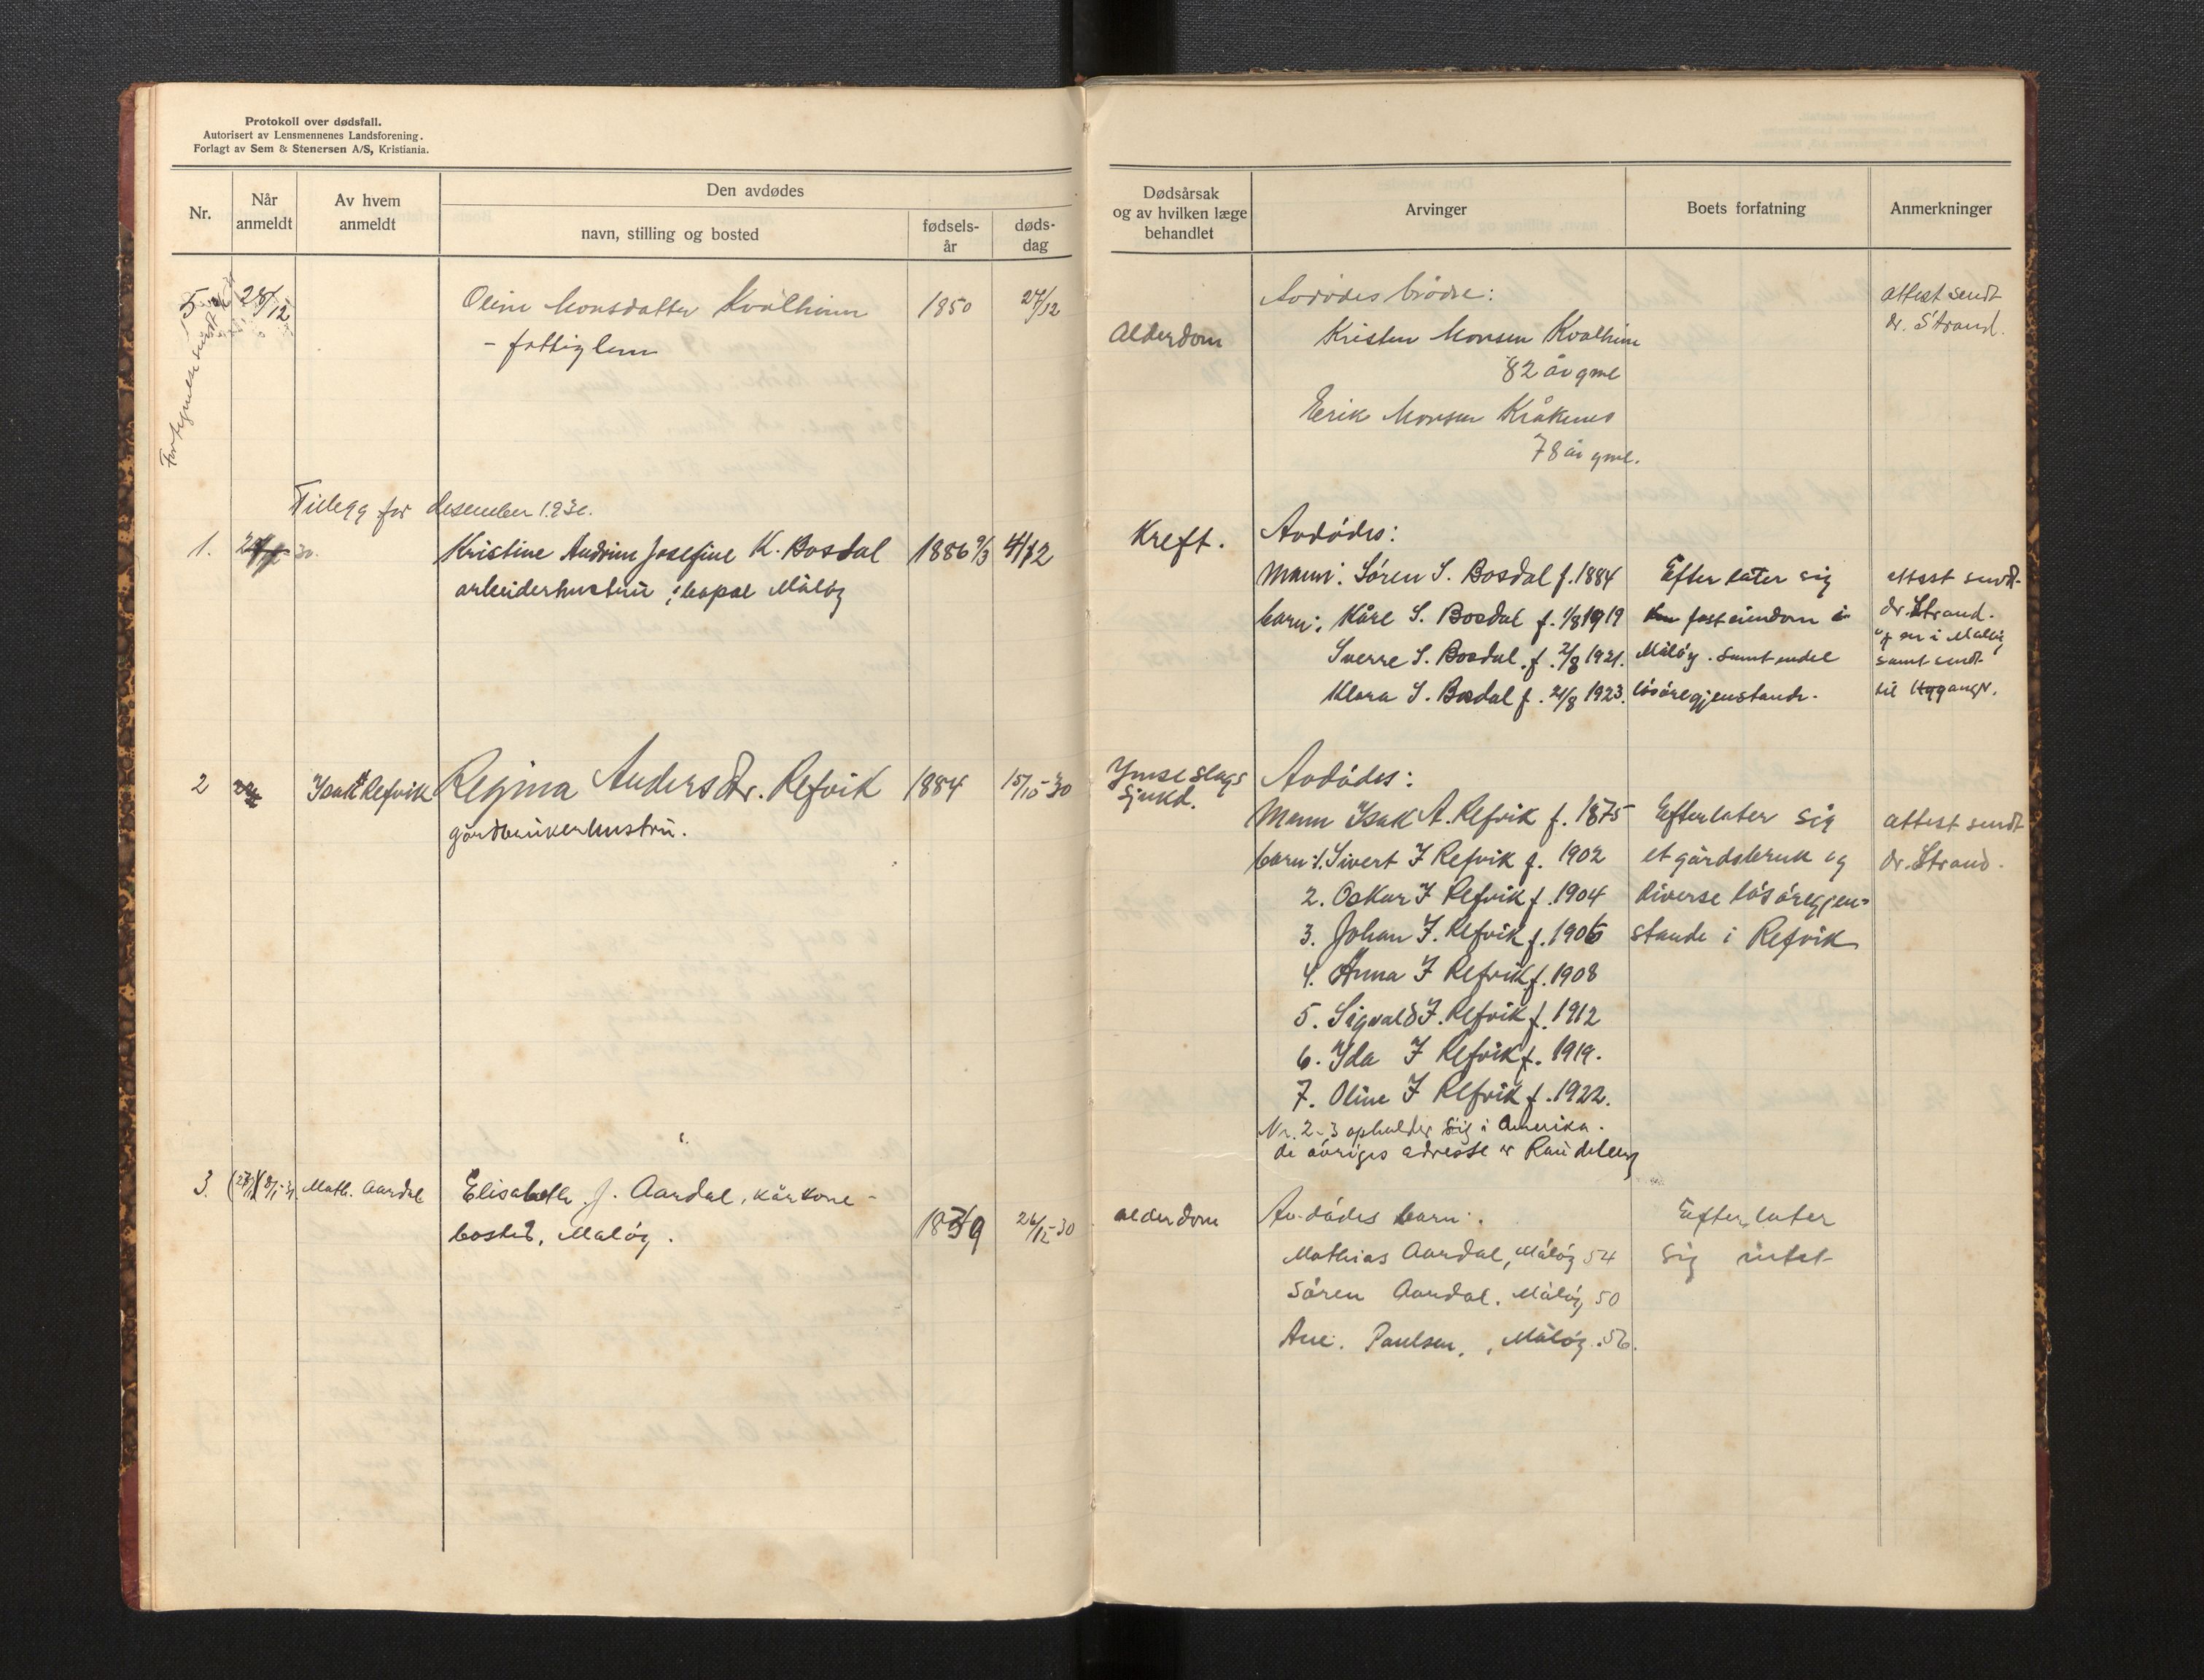 Protokoll over dødsfall.
Autorisert av Lensmennenes Landsforening.
Forlagt av Sem & Stenersen A/S, Kristiania.
Nr.
Når anmeldt
Av hvem anmeldt
Den avdødes
navn, stilling og bosted
fødsels-år
døds-dag
Dødsårsak og av hvilken læge behandlet
Arvinger
Boets forfatning
Anmerkninger
5 28/12 Oline Monsdatter Kvalheim 1850 27/12
- fattiglem
Alderdom
Avdødes brødre:
Kristen Monsen Kvalheim
82 år gml
Eerik Monsen Kråkenes
78 år gml.
attest sendt
dr. Strand.
Tillegg for desember 1930.
1. Kristine Andrine Josefine K. Bosdal 1886 9/3 4/12
arbeiderhustru, bopæl Måløy
Kreft.
Avdødes:
Mann: Søren S. Bosdal f. 1884
barn: Kåre S. Bosdal f. 1/8 1919
Sverre S. Bosdal f. 2/8 1921.
Klara S. Bosdal f. 21/8 1923.
Efterlater sig
fast eiendom i
Måløy. Samt endel
løsøregjenstande.
attest sendt
dr. Strand.
samt sendt
2 Isak A Refvik Regina Andersdtr. Refvik 1884 15/10-30
gårdbrukerhustru.
Ymse slags
sjukd.
Avdødes:
Mann Isak A. Refvik f. 1875
barn: 1. Sivert I Refvik f. 1902
2. Oskar I Refvik f. 1904
3. Johan I. Refvik f. 1906
4. Anna I Refvik f. 1908
5. Sigvald I. Refvik f. 1912
6. Ida I Refvik f. 1919.
7. Oline I Refvik f. 1922.
Nr. 2-3 opholder sig i Amerika.
de øvriges adresse er Raudeberg
Efterlater sig
et gårdsbruk og
diverse løsøregjen=
stande i Refvik
attest sendt
dr. Strand.
3. Math. Aardal Elisabeth J. Aardal, kårkone -
bosted, Måløy. 26/12-30
alderdom
Avdødes barn:
Mathias Aardal, Måløy 54
Søren Aardal, Måløy 50
Ane. Paulsen, Måløy. 56.
Efterlater
sig intet